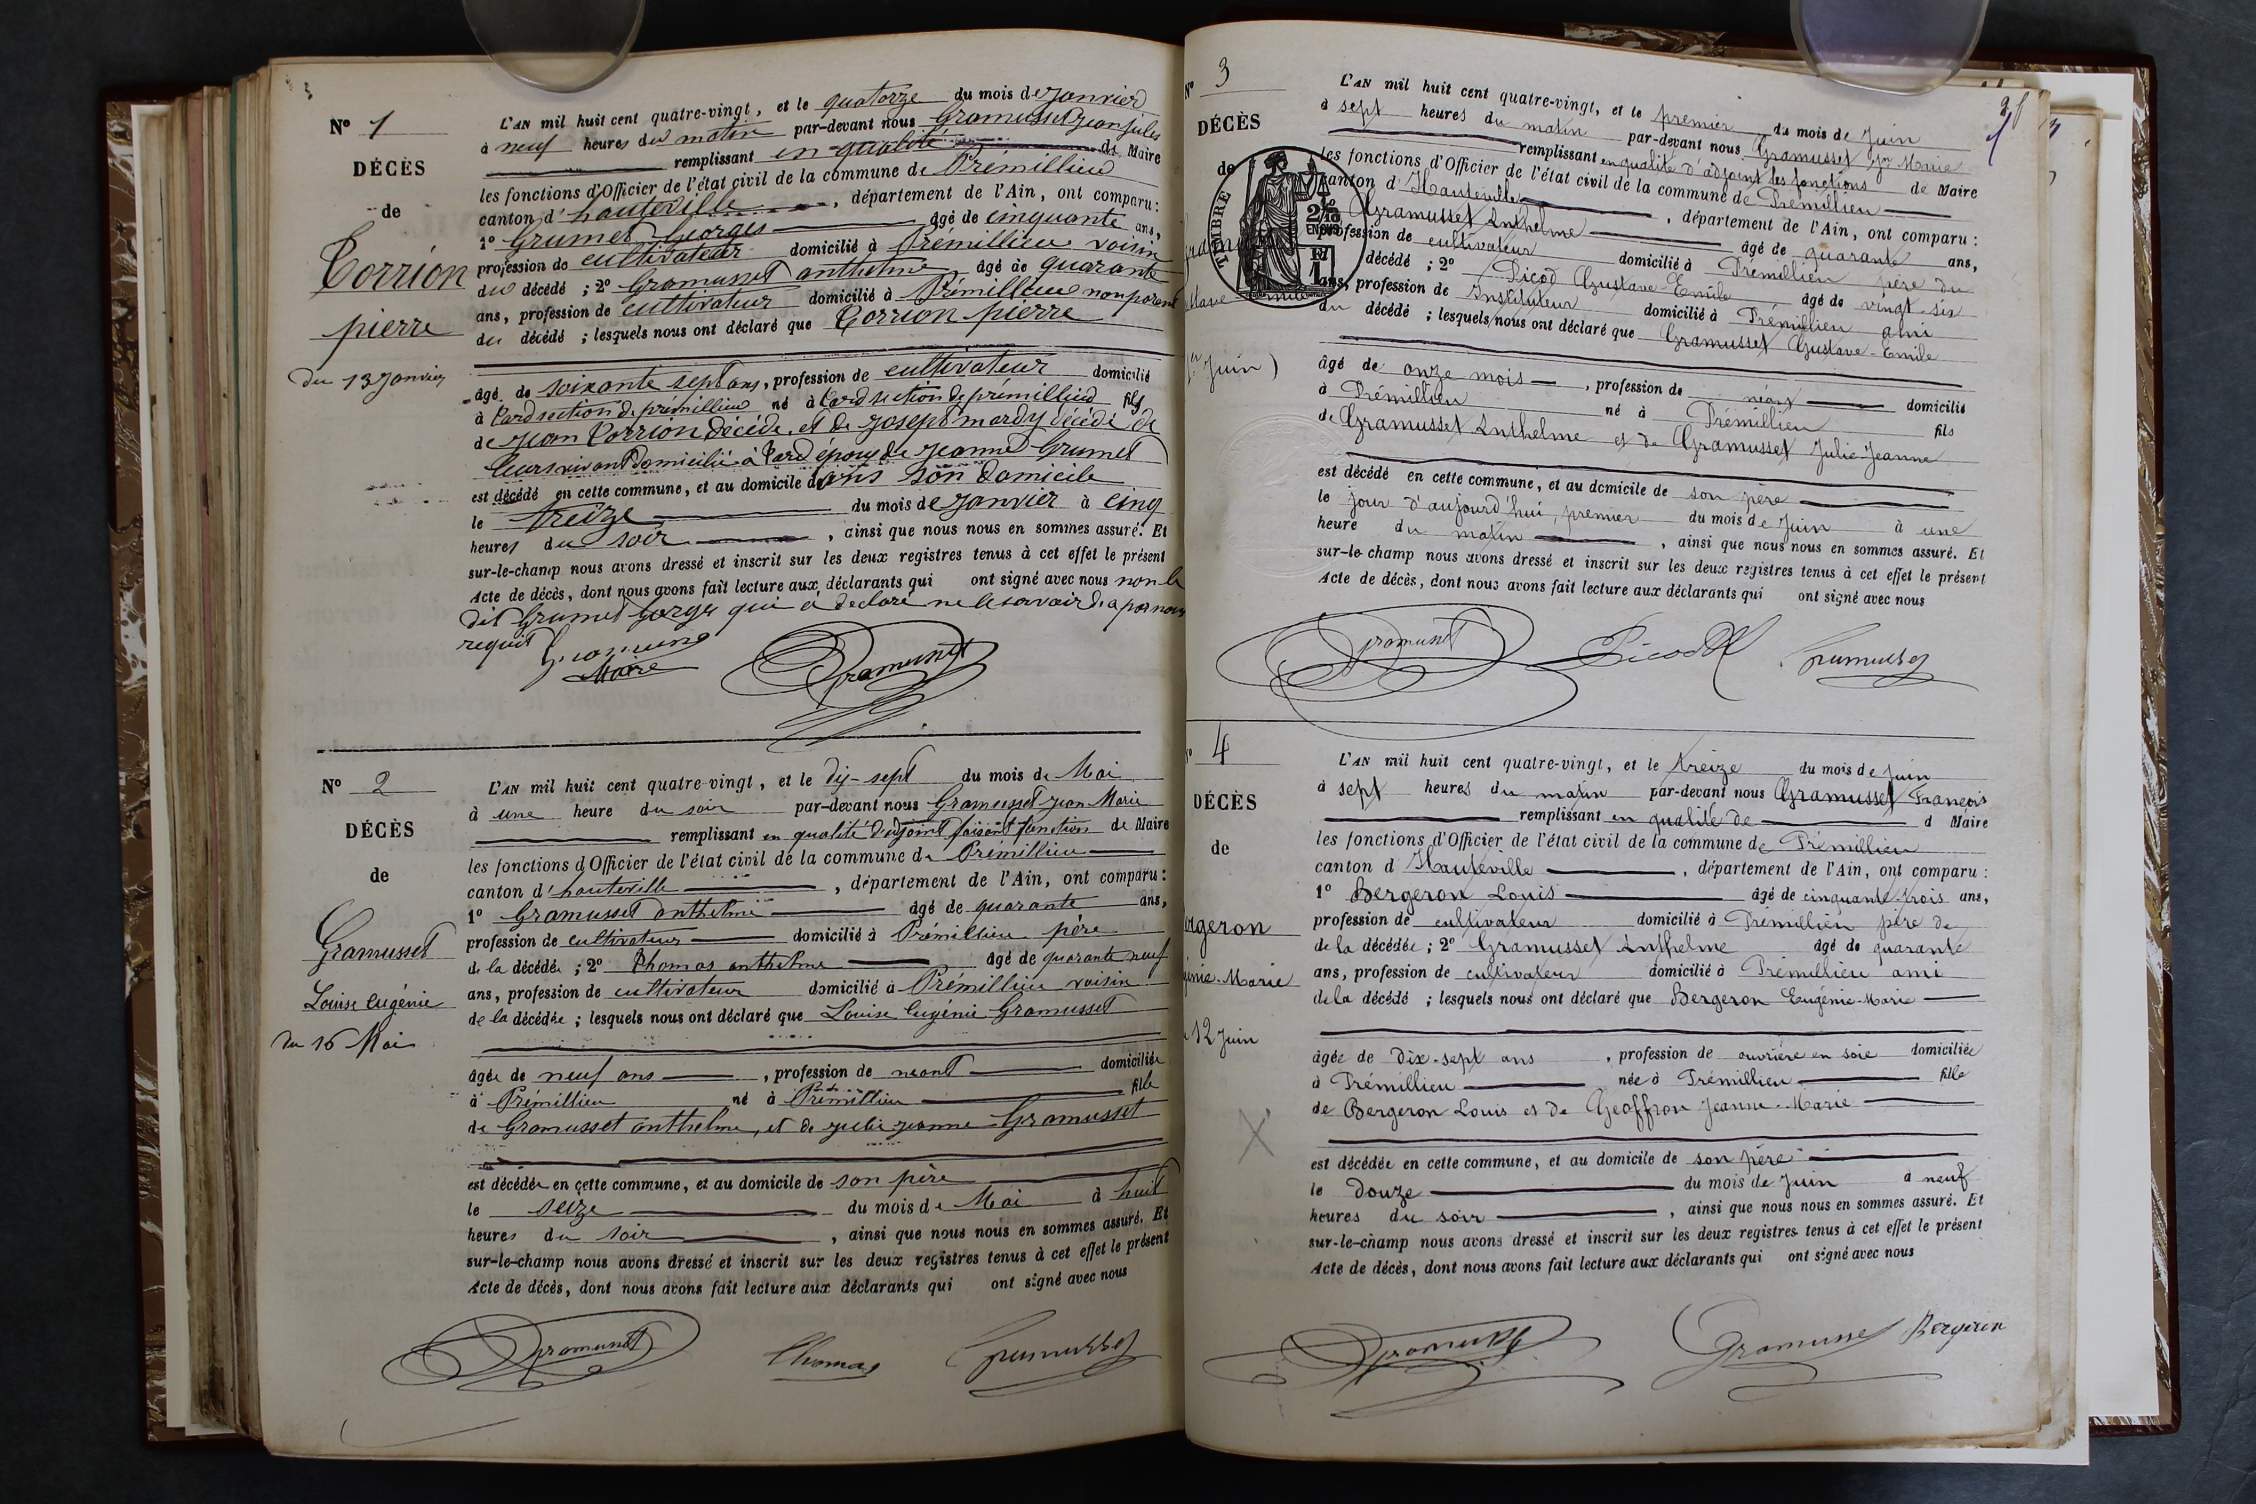 Nº 1
DÉCÈS
de
Corrion
pierre
du 13 Janvier
L'AN mil huit cent quatre-vingt, et le quatorze du mois de Janvier
à neuf heures du matin par-devant nous Gramusset jean jules
remplissant en qualité de Maire
les fonctions d'Officier de l'état civil de la commune de Prémillieu
canton d'hauteville, département de l'Ain, ont comparu :
1º Grumet Georges âgé de cinquante ans,
profession de cultivateur domicilié à Prémillieu voisin
du décédé ; 2º Gramusset anthelme âgé de quarante
ans, profession de cultivateur domicilié à Prémillieu non parent
du décédé ; lesquels nous ont déclaré que Corrion pierre
âgé de soixante sept ans, profession de cultivateur domicilié
à section de prémillieu né à section de prémillieu fils
de jean Corrion décédé, et de joseph mardy décédé de
leurs vivant domicilié à époux de jeanne Grumet
est décédé en cette commune, et au domicile dans son domicile
le treize du mois de Janvier à cinq
heures du soir, ainsi que nous nous en sommes assuré. Et
sur-le-champ nous avons dressé et inscrit sur les deux registres tenus à cet effet le présent
Acte de décès, dont nous avons fait lecture aux déclarants qui ont signé avec nous non le
dit Grumet Gorges qui a declaré ne le savoir de a par nous
requit
Maire
Gramusset
Nº 2
DÉCÈS
de
Gramusset
Louise Eugénie
du 16 Mai
L'AN mil huit cent quatre-vingt, et le dix-sept du mois de Mai
à une heure du soir par-devant nous Gramusset jean Marie
remplissant en qualité d'adjoint faisant fonction de Maire
les fonctions d'Officier de l'état civil de la commune de Prémillieu
canton d'hauteville, département de l'Ain, ont comparu :
1º Gramusset anthelme âgé de quarante ans,
profession de cultivateur domicilié à Prémillieu père
de la décédée ; 2º Thomas anthelme âgé de quarante neuf
ans, profession de cultivateur domicilié à Prémillieu voisin
de la décédée ; lesquels nous ont déclaré que Louise Eugénie Gramusset
âgée de neuf ans, profession de neant domiciliée
à Prémillieu né à Prémillieu fille
de Gramusset anthelme, et de julie jeanne Gramusset
est décédée en cette commune, et au domicile de son père
le seize du mois de Mai à huit
heures du soir, ainsi que nous nous en sommes assuré. Et
sur-le-champ nous avons dressé et inscrit sur les deux registres tenus à cet effet le présent
Acte de décès, dont nous avons fait lecture aux déclarants qui ont signé avec nous
Gramusset Thomas Gramusset
Nº 3
DÉCÈS
de
TIMBRE
2/10 EN SUS
1er Juin)
L'AN mil huit cent quatre-vingt, et le premier du mois de Juin
à sept heures du matin par-devant nous Gramusset Jn Marie
remplissant en qualité d'adjoint les fonctions de Maire
les fonctions d'Officier de l'état civil de la commune de Prémillieu
canton d'Hauteville, département de l'Ain, ont comparu :
Gramusset Anthelme âgé de quarante ans,
profession de cultivateur domicilié à Prémillieu père du
décédé ; 2º Picod Gustave-Emile âgé de vingt-six
ans, profession de Instituteur domicilié à Prémillieu ami
du décédé ; lesquels nous ont déclaré que Gramusset Gustave-Emile
âgé de onze mois, profession de néant domicilié
à Prémillieu né à Prémillieu fils
de Gramusset Anthelme et de Gramusset Julie Jeanne
est décédé en cette commune, et au domicile de son père
le jour d'aujourd'hui, premier du mois de Juin à une
heure du matin, ainsi que nous nous en sommes assuré. Et
sur-le-champ nous avons dressé et inscrit sur les deux registres tenus à cet effet le présent
Acte de décès, dont nous avons fait lecture aux déclarants qui ont signé avec nous
Gramusset Picod Gramusset
Nº 4
DÉCÈS
de
rgeron
énie-Marie
12 Juin
L'AN mil huit cent quatre-vingt, et le treize du mois de Juin
à sept heures du matin par-devant nous Gramusset François
remplissant en qualité de d Maire
les fonctions d'Officier de l'état civil de la commune de Prémillieu
canton d'Hauteville, département de l'Ain, ont comparu :
1º Bergeron Louis âgé de cinquante-trois ans,
profession de cultivateur domicilié à Prémillieu père de
de la décédée ; 2º Gramusset Anthelme âgé de quarante
ans, profession de cultivateur domicilié à Prémillieu ami
de la décédé ; lesquels nous ont déclaré que Bergeron Eugénie-Marie
âgée de dix-sept ans, profession de ouvrière en soie domiciliée
à Prémillieu née à Prémillieu fille
de Bergeron Louis et de Geoffron Jeanne-Marie
est décédée en cette commune, et au domicile de son père
le douze du mois de Juin à neuf
heures du soir, ainsi que nous nous en sommes assuré. Et
sur-le-champ nous avons dressé et inscrit sur les deux registres tenus à cet effet le présent
Acte de décès, dont nous avons fait lecture aux déclarants qui ont signé avec nous
Gramusset Gramusset Bergeron